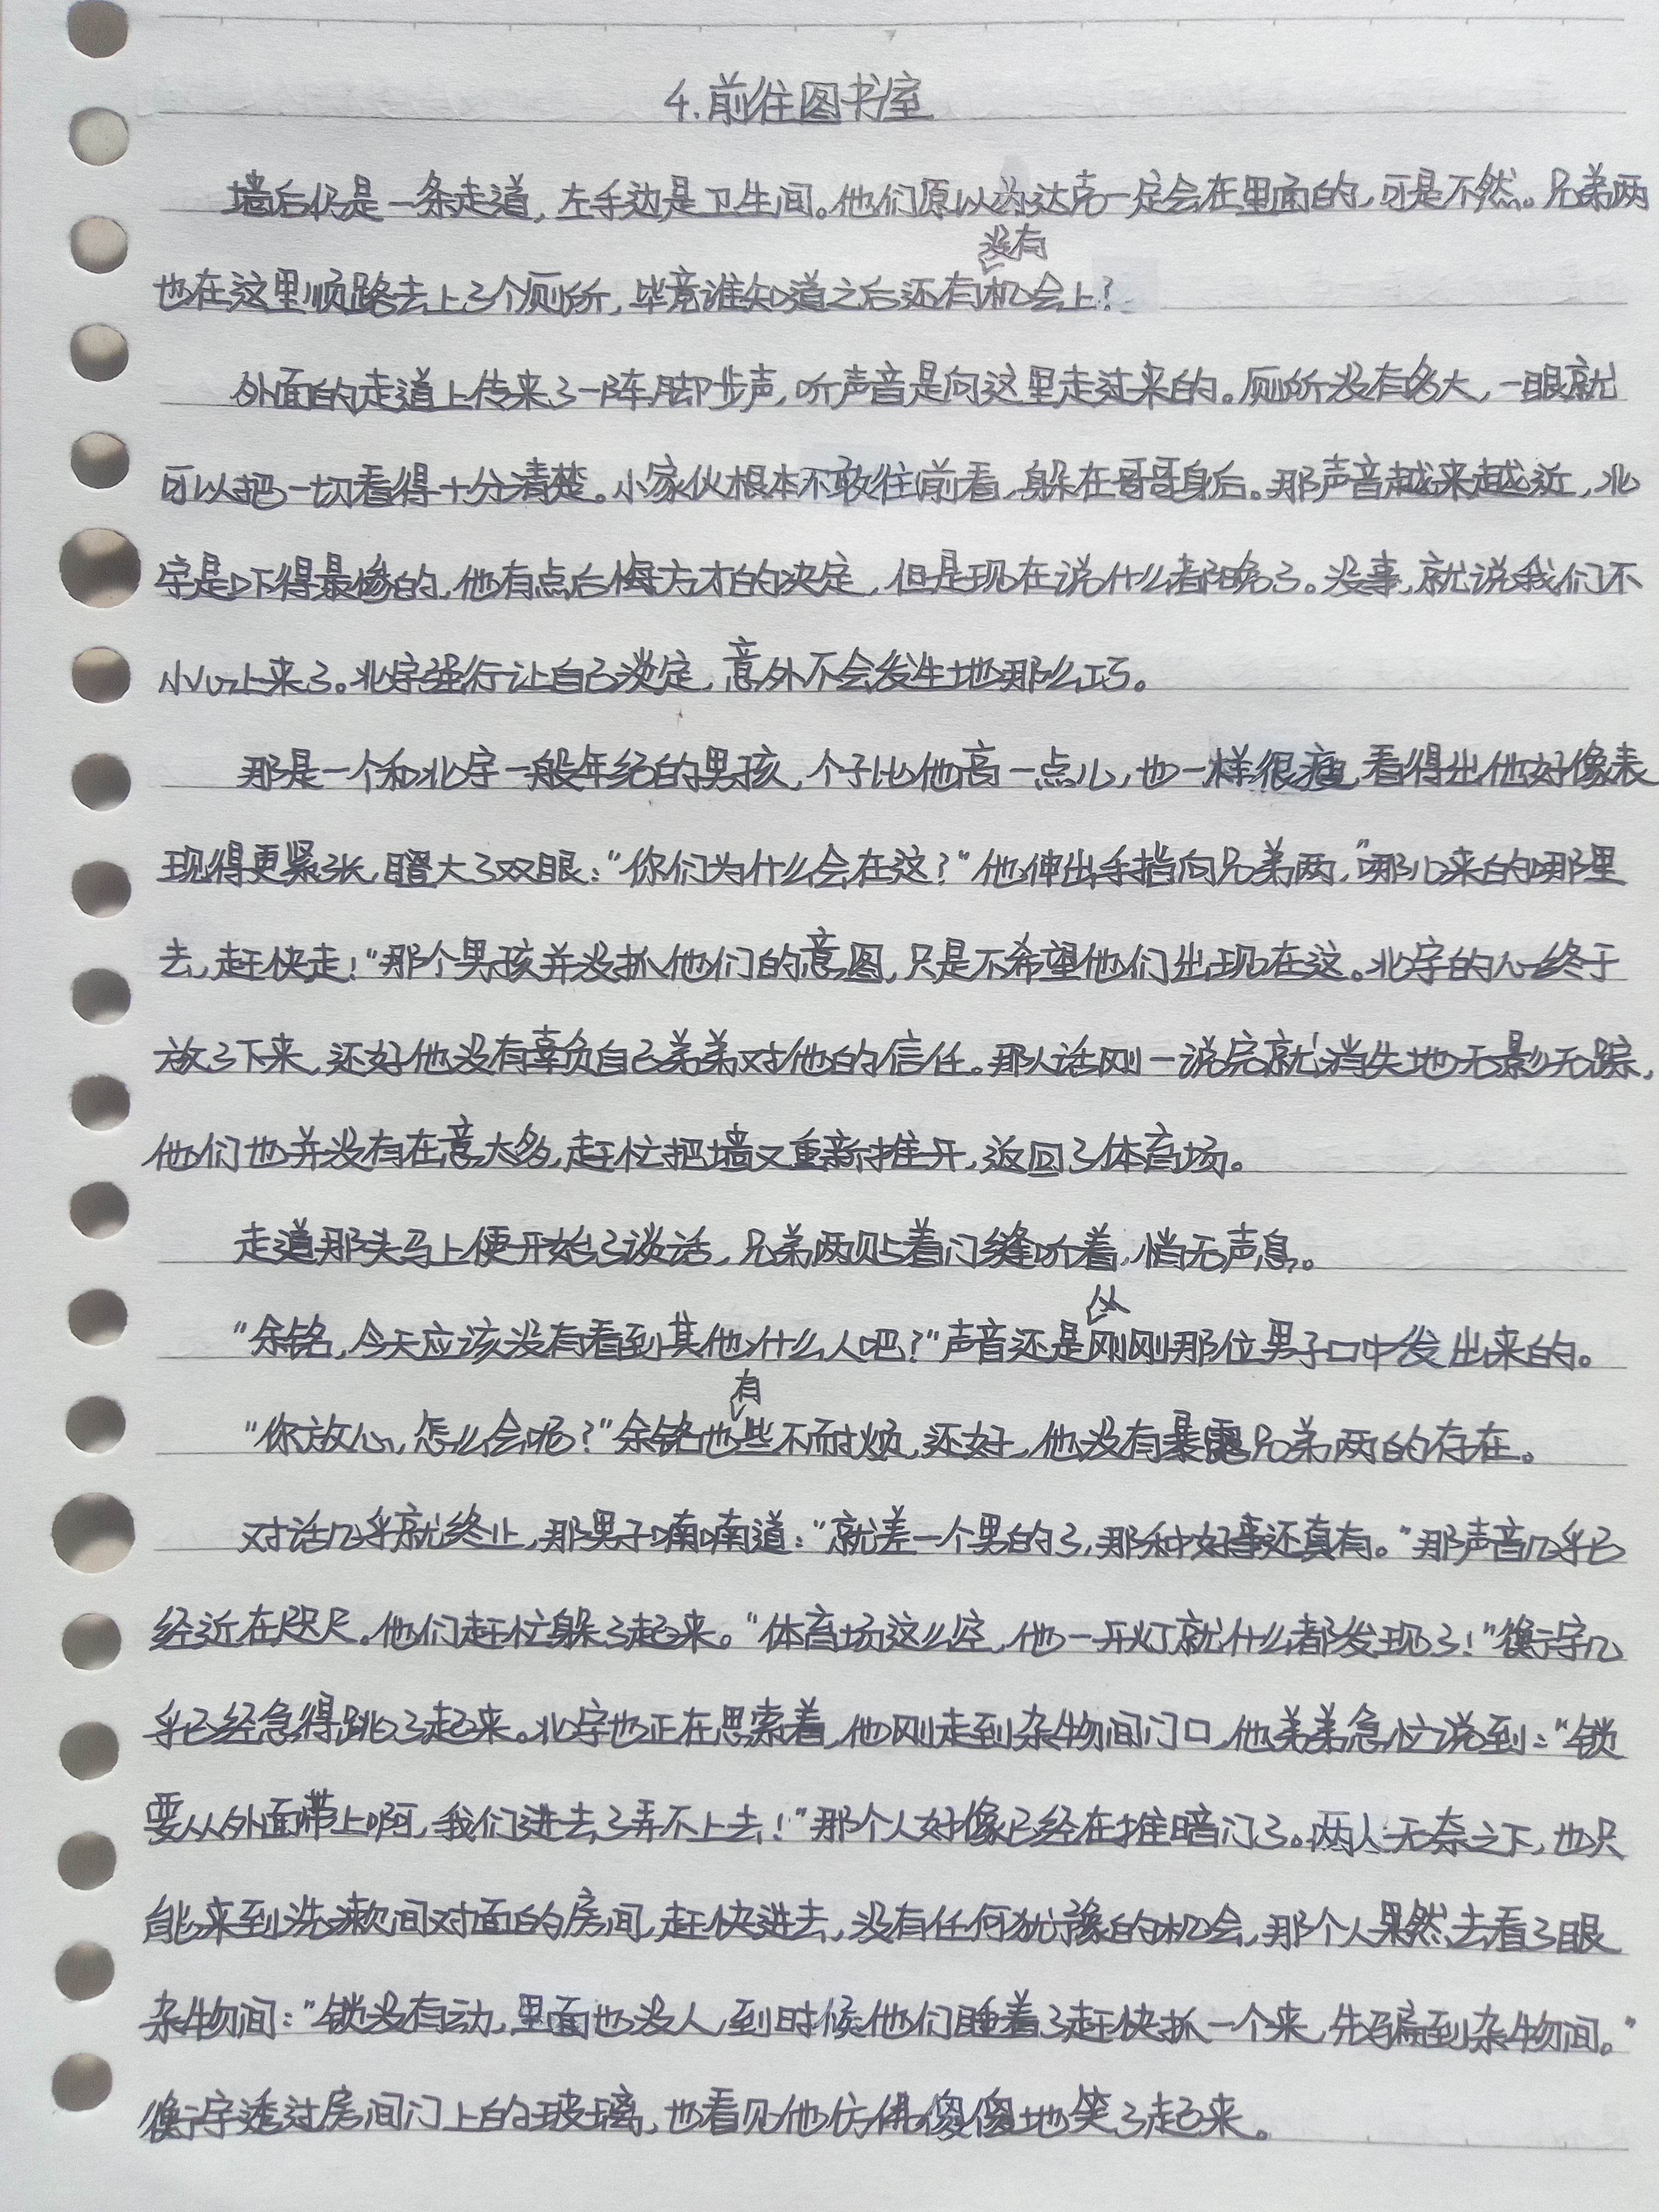 4.前往图书室
墙后仍是一条走道,左手边是卫生间。他们原以为达克一定会在里面的,可是不然。兄弟两
没有
也在这里顺路去上了个厕所,毕竟谁知道之后还有机会上?
外面的走道上传来了一阵脚步声,听声音是向这里走过来的。厕所没有多大,一眼就
可以把一切看得十分清楚。小家伙根本不敢往前看,躲在哥哥身后。那声音越来越近,北
宇是吓得最惨的,他有点后悔方才的决定,但是现在说什么都晚了。没事,就说我们不
小心上来了。北宇强行让自己淡定,意外不会发生地那么巧。
那是一个和北宇一般年纪的男孩,个子比他高一点儿,也一样很瘦,看得出他好像表
现得更紧张,瞪大了双眼:"你们为什么会在这?"他伸出手挡向兄弟两,"哪儿来的哪里
去,赶快走!"那个男孩并没抓他们的意图,只是不希望他们出现在这。北宇的心终于
放了下来,还好他没有辜负自己弟弟对他的信任。那人话刚一说完就消失地无影无踪,
他们也并没有在意太多,赶忙把墙又重新推开,返回了体育场。
走道那头马上便开始了谈话,兄弟两贴着门缝听着,悄无声息。
从
"余铭,今天应该没有看到其他什么人吧?"声音还是刚刚那位男子口中发出来的。
有
"你放心,怎么会呢?"余铭也些不耐烦,还好,他没有暴露兄弟两的存在。
对话几乎就终止,那男子喃喃道:"就差一个男的了,那种好事还真有。"那声音几乎已
经近在咫尺。他们赶忙躲了起来。"体育场这么空,他一开灯就什么都发现了!"衡宇几
乎已经急得跳了起来。北宇也正在思索着,他刚走到杂物间门口,他弟弟急忙说到:"锁
要从外面带上啊,我们进去了弄不上去!"那个人好像已经在推暗门了。两人无奈之下,也只
能来到洗漱间对面的房间,赶快进去,没有任何犹豫的机会,那个人果然去看了眼
杂物间:"锁没有动,里面也没人,到时候他们睡着了赶快抓一个来,先骗到杂物间。"
衡宇透过房间门上的玻璃,也看见他仿佛傻傻地笑了起来。